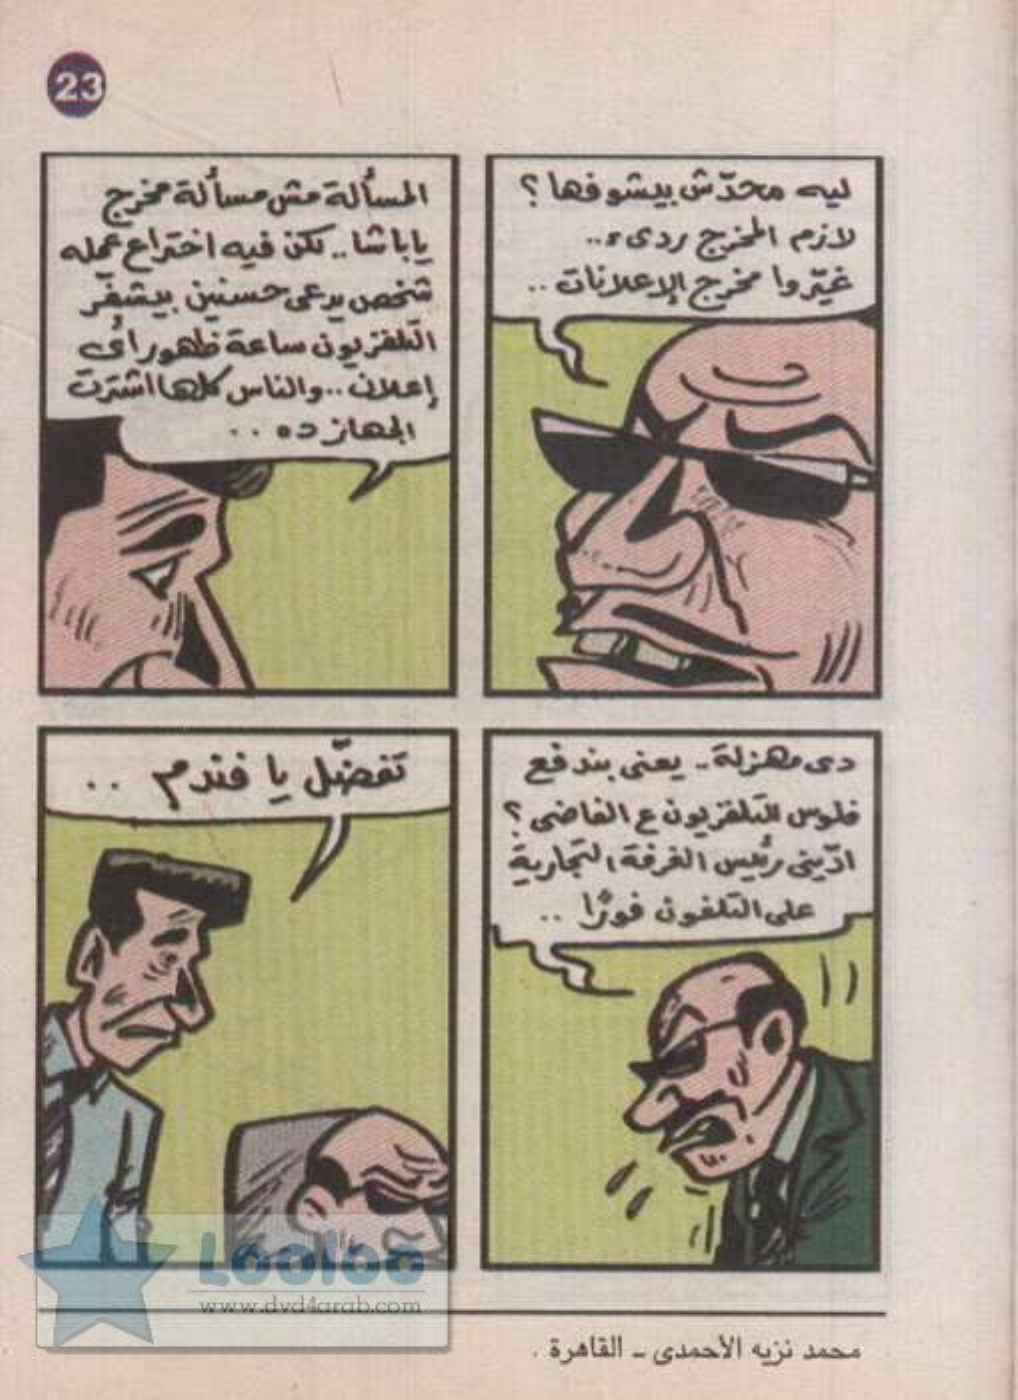 23
ليه محدّش بيشوفها ؟
لازم المخرج ردىء..
غيّروا مخرج الإعلانات ..
المسألة مش مسألة مخرج
ياباشا .. لكن فيه اختراع عمله
شخص يدعى حسنين بيشفّر
التلفزيون ساعة ظهور أى
إعلان ..والناس كلها اشترت
الجهاز ده ..
دى مهزلة - يعنى بندفع
فلوس التلفزيون ع الفاضى ؟
ادّينى رئيس الغرفة التجارية
على التلفون فورًا ..
تفضّل يا فندم ..
Looloo
www.dvd4arab.com
محمد نزيه الأحمدى - القاهرة .